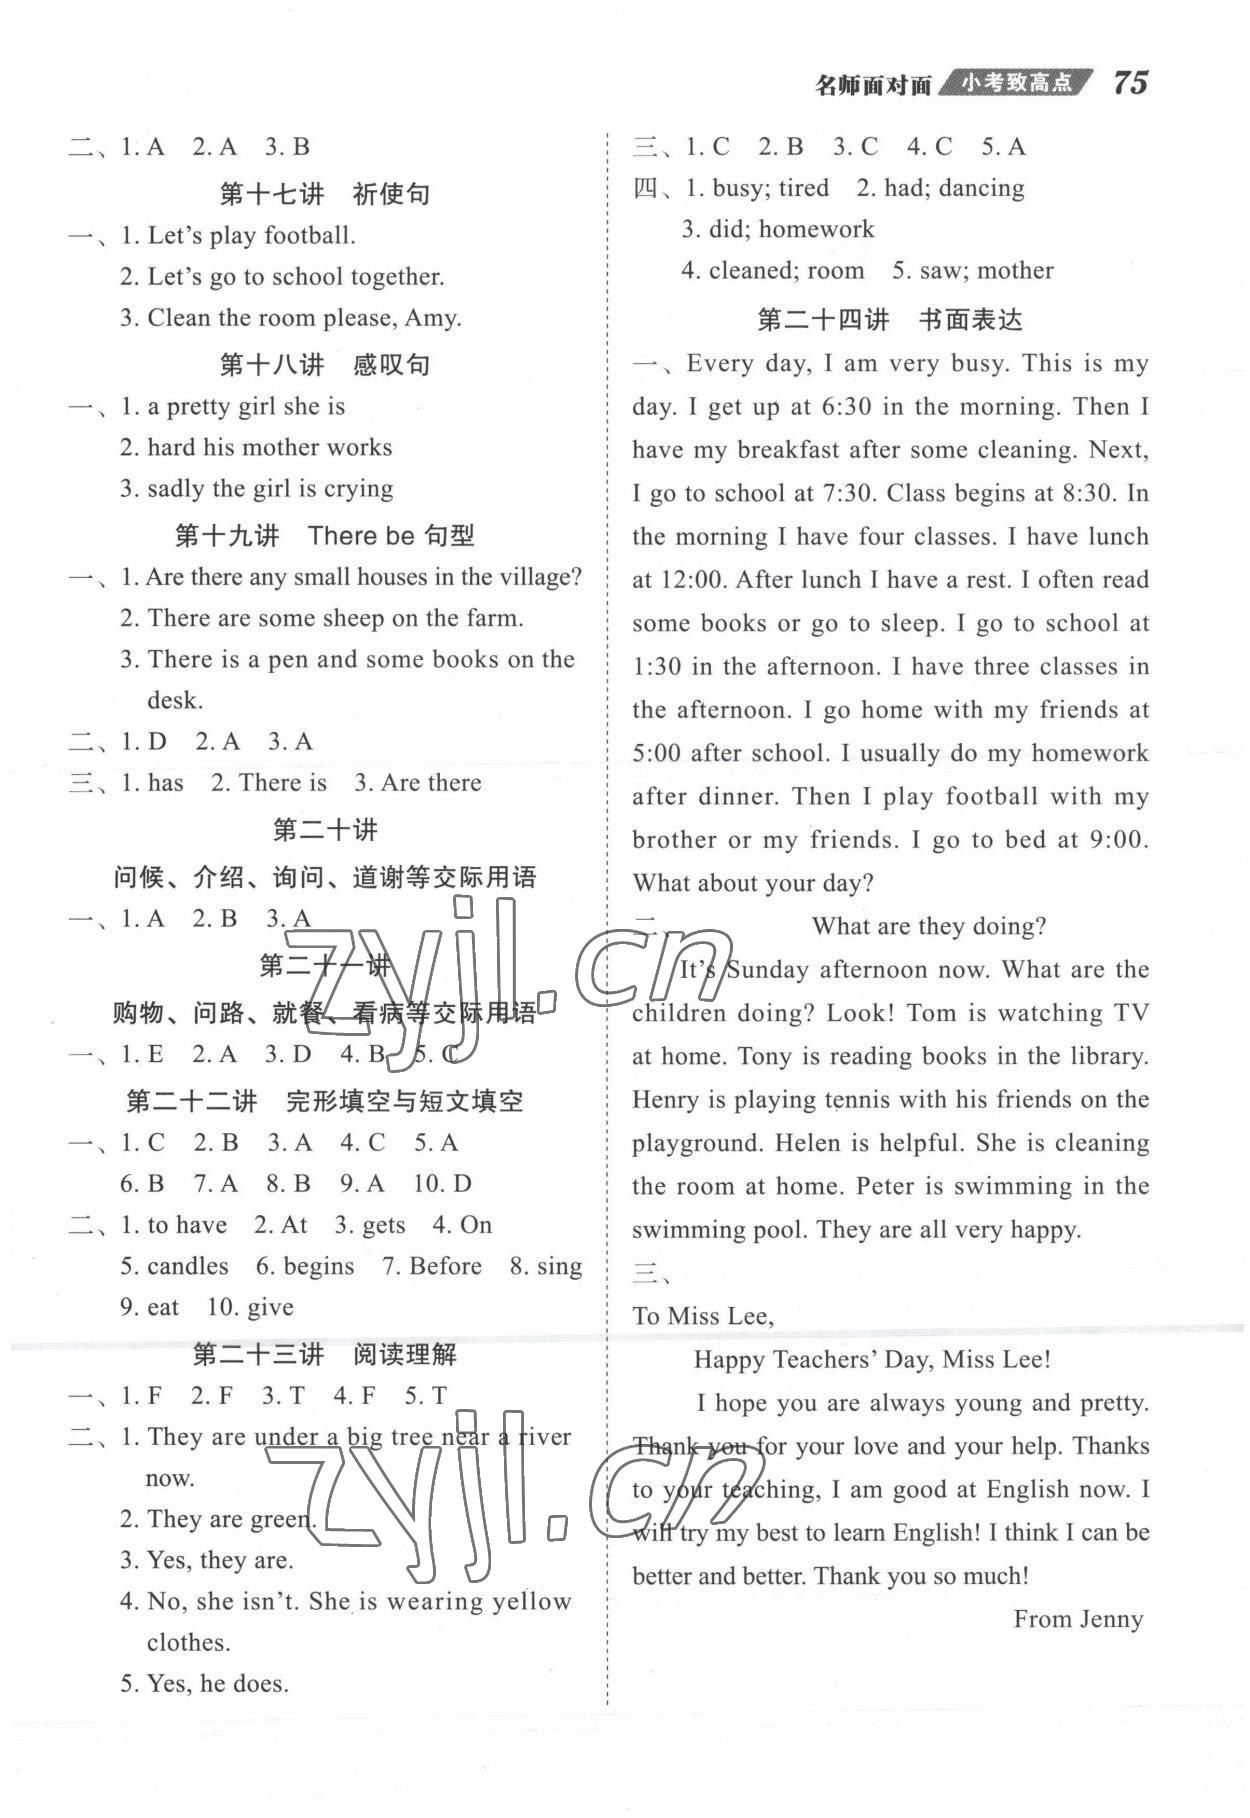 名师面对面 小考致高点 75
二、1. A 2. A 3. B
第十七讲 祈使句
一、1. Let's play football.
2. Let's go to school together.
3. Clean the room please, Amy.
第十八讲 感叹句
一、1. a pretty girl she is
2. hard his mother works
3. sadly the girl is crying
第十九讲 There be 句型
一、1. Are there any small houses in the village?
2. There are some sheep on the farm.
3. There is a pen and some books on the
desk.
二、1. D 2. A 3. A
三、1. has 2. There is 3. Are there
第二十讲
问候、介绍、询问、道谢等交际用语
一、1. A 2. B 3. A
第二十一讲
购物、问路、就餐、看病等交际用语
一、1. E 2. A 3. D 4. B 5. C
第二十二讲 完形填空与短文填空
一、1. C 2. B 3. A 4. C 5. A
6. B 7. A 8. B 9. A 10. D
二、1. to have 2. At 3. gets 4. On
5. candles 6. begins 7. Before 8. sing
9. eat 10. give
第二十三讲 阅读理解
一、1. F 2. F 3. T 4. F 5. T
二、1. They are under a big tree near a river
now.
2. They are green.
3. Yes, they are.
4. No, she isn't. She is wearing yellow
clothes.
5. Yes, he does.
三、1. C 2. B 3. C 4. C 5. A
四、1. busy; tired 2. had; dancing
3. did; homework
4. cleaned; room 5. saw; mother
第二十四讲 书面表达
一、Every day, I am very busy. This is my
day. I get up at 6:30 in the morning. Then I
have my breakfast after some cleaning. Next,
I go to school at 7:30. Class begins at 8:30. In
the morning I have four classes. I have lunch
at 12:00. After lunch I have a rest. I often read
some books or go to sleep. I go to school at
1:30 in the afternoon. I have three classes in
the afternoon. I go home with my friends at
5:00 after school. I usually do my homework
after dinner. Then I play football with my
brother or my friends. I go to bed at 9:00.
What about your day?
二、 What are they doing?
It's Sunday afternoon now. What are the
children doing? Look! Tom is watching TV
at home. Tony is reading books in the library.
Henry is playing tennis with his friends on the
playground. Helen is helpful. She is cleaning
the room at home. Peter is swimming in the
swimming pool. They are all very happy.
三、
To Miss Lee,
Happy Teachers' Day, Miss Lee!
I hope you are always young and pretty.
Thank you for your love and your help. Thanks
to your teaching, I am good at English now. I
will try my best to learn English! I think I can be
better and better. Thank you so much!
From Jenny
zyjl.cn
zyjl.cn